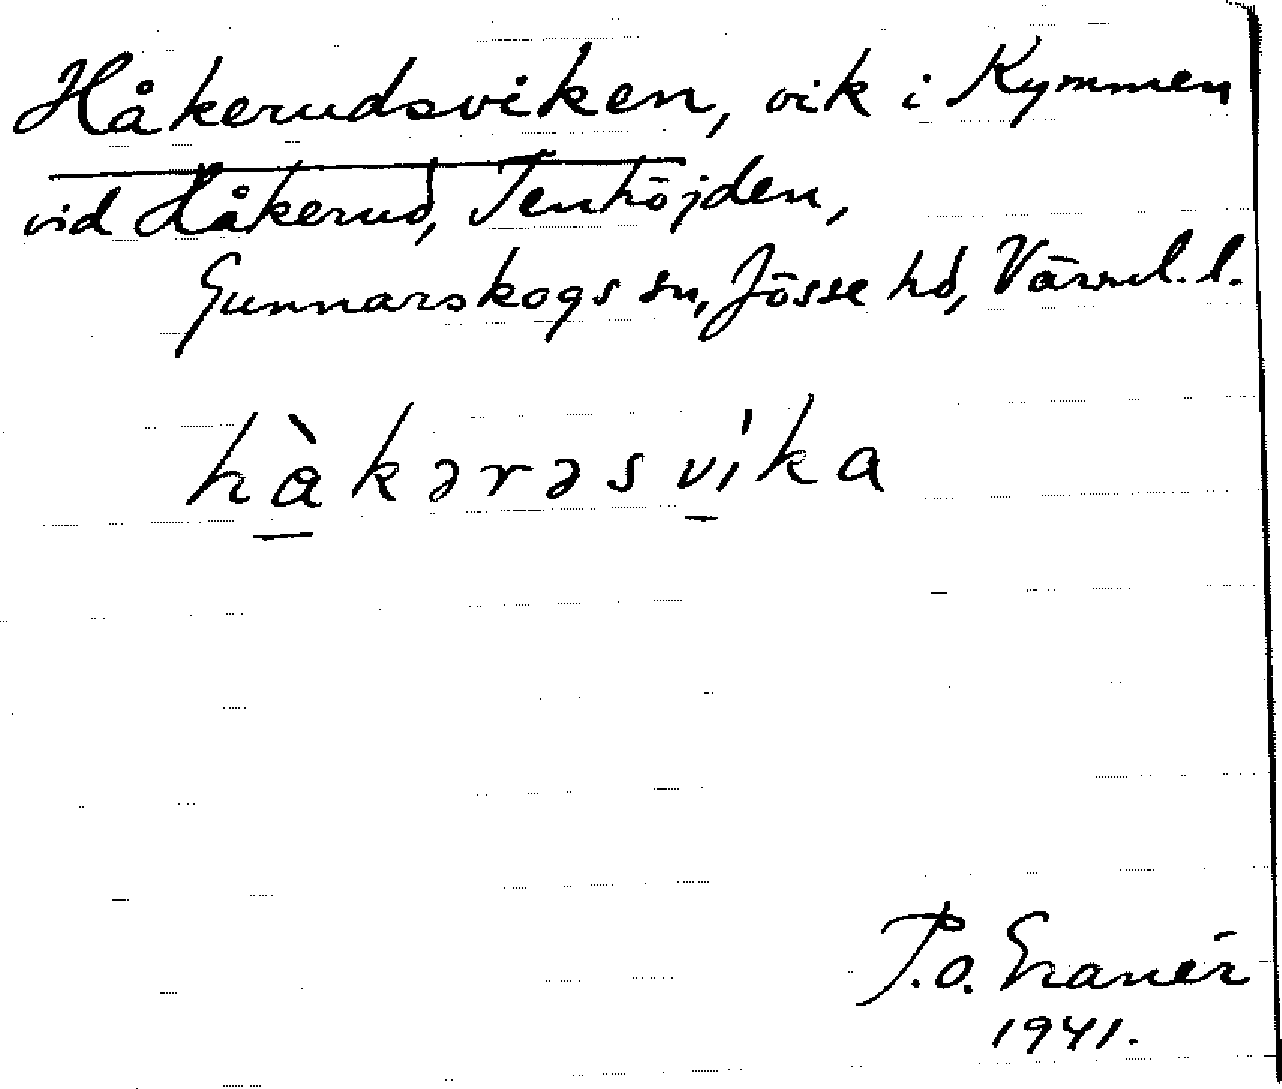 Håkerudsviken, vik i Kymmen
vid Håkerud, Tenhöjden,
Gunnarskogs sn, Jösse hd, Värml. l.
hàkərəsvi'ka
P.O. Granér
1941.